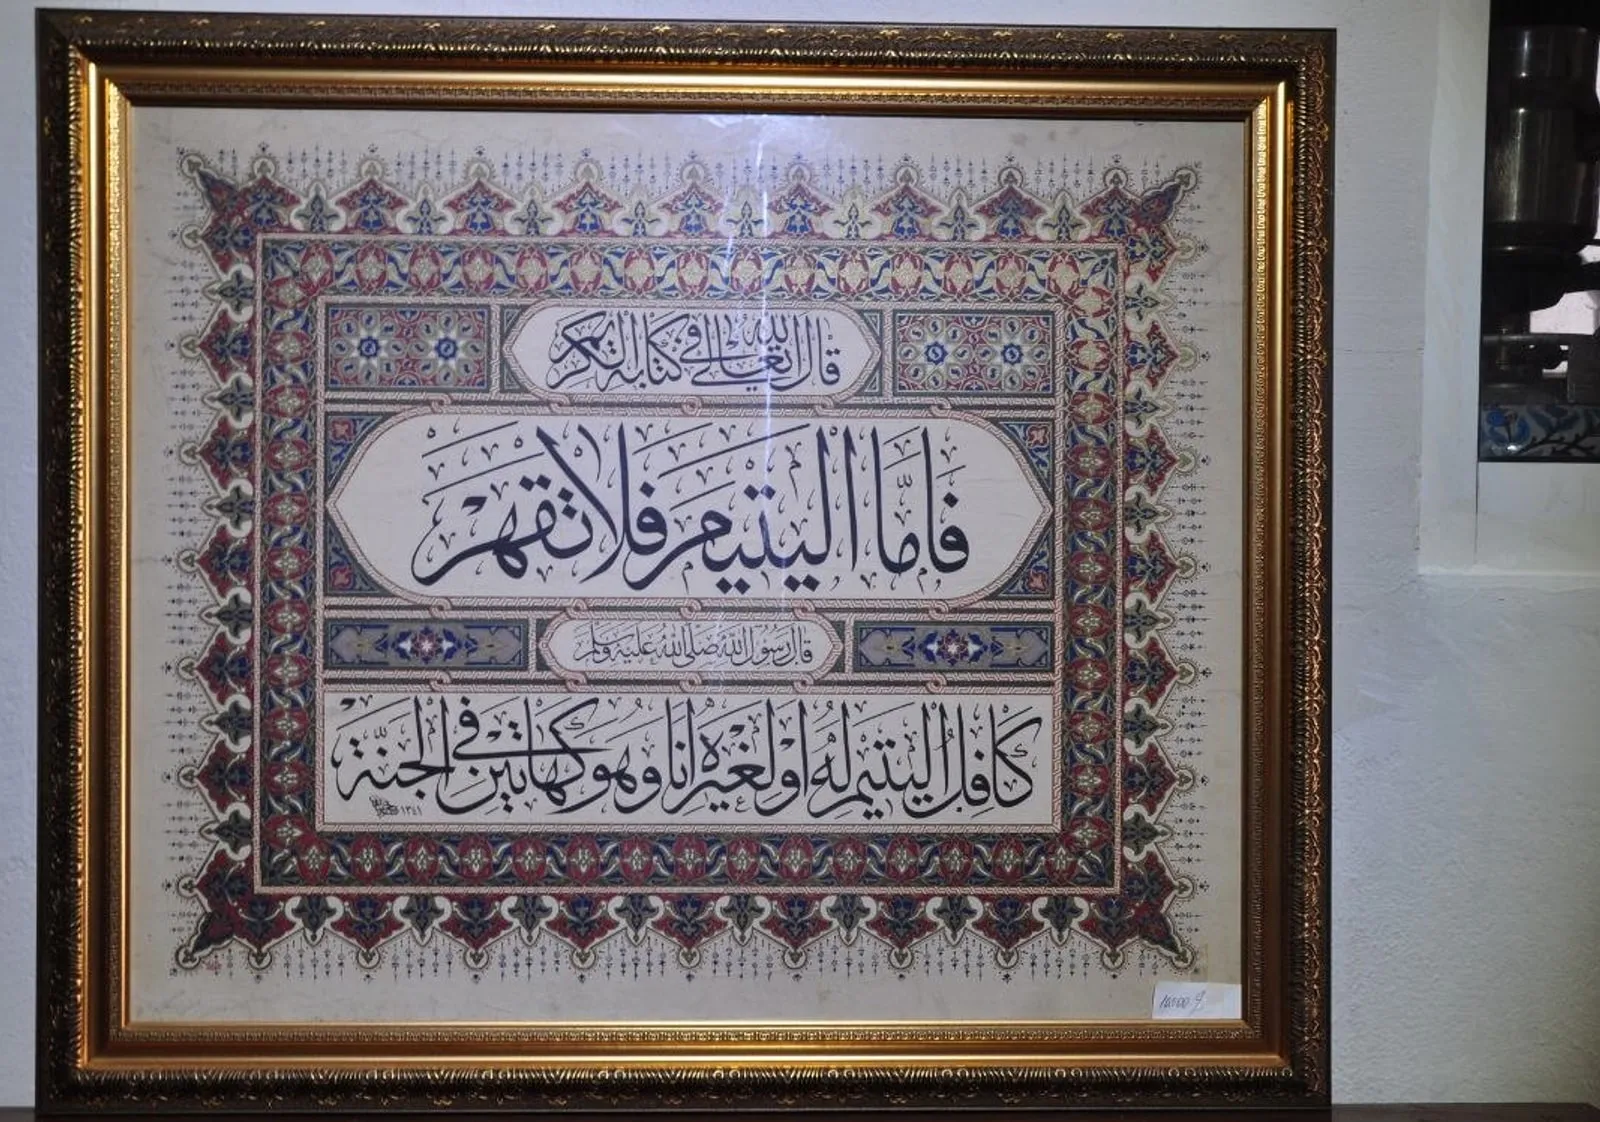 قال الله تعالى في كتابه الكريم
فاما اليتيم فلا تقهر
قال رسول الله صلى الله عليه وسلم
كافل اليتيم له او لغيره انا وهو كهاتين في الجنة
١٣٤١